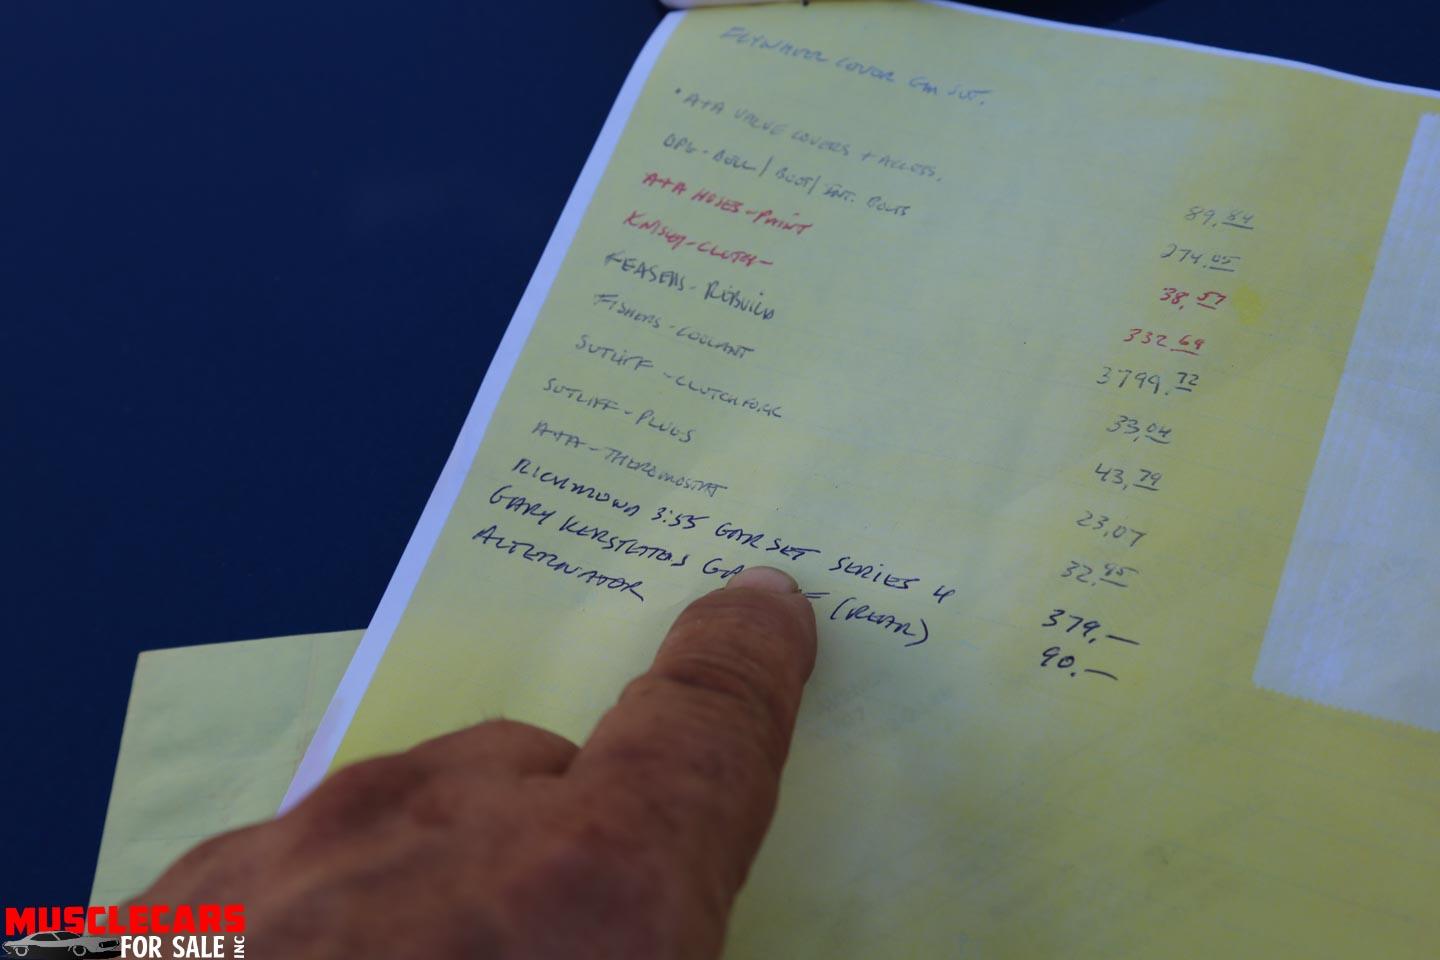 FLYWHEEL COVER GM SUT.
• A+A VALVE COVERS + ACCESS. 89.84
OPG - BELL / BOOT / INT. BOLTS 274.05
A+A HOSES - PAINT 38.57
CLUTCH - 332.69
FEASERS - REBUILD 3799.72
FISHERS - COOLANT 33.04
SUTLIFF - CLUTCH FORK 43.79
SUTLIFF - PLUGS 23.07
A+A - THERMOSTAT 32.95
RICHMOND 3:55 GEAR SET SERIES 4 379.—
GARY (REAR) 90.—
ALTERNATOR
MUSCLECARS
FOR SALE INC